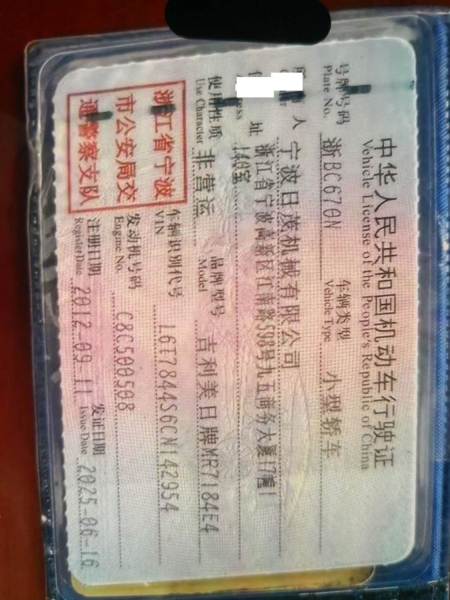 中华人民共和国机动车行驶证
Vehicle License of the People's Republic of China
号牌号码 浙BC670N 车辆类型 小型轿车
Plate No. Vehicle Type
人 宁波日茂机械有限公司
址 浙江省宁波高新区江南路598号九五商务大厦17幢1
148室
使用性质 非营运 品牌型号 吉利美日牌MR7184E4
Use Character Model
浙江省宁波
市公安局交
通警察支队
车辆识别代号 L6T7844S6CN142954
VIN
发动机号码 C8C500508
Engine No.
注册日期 2012-09-11 发证日期 2025-06-16
Register Date Issue Date